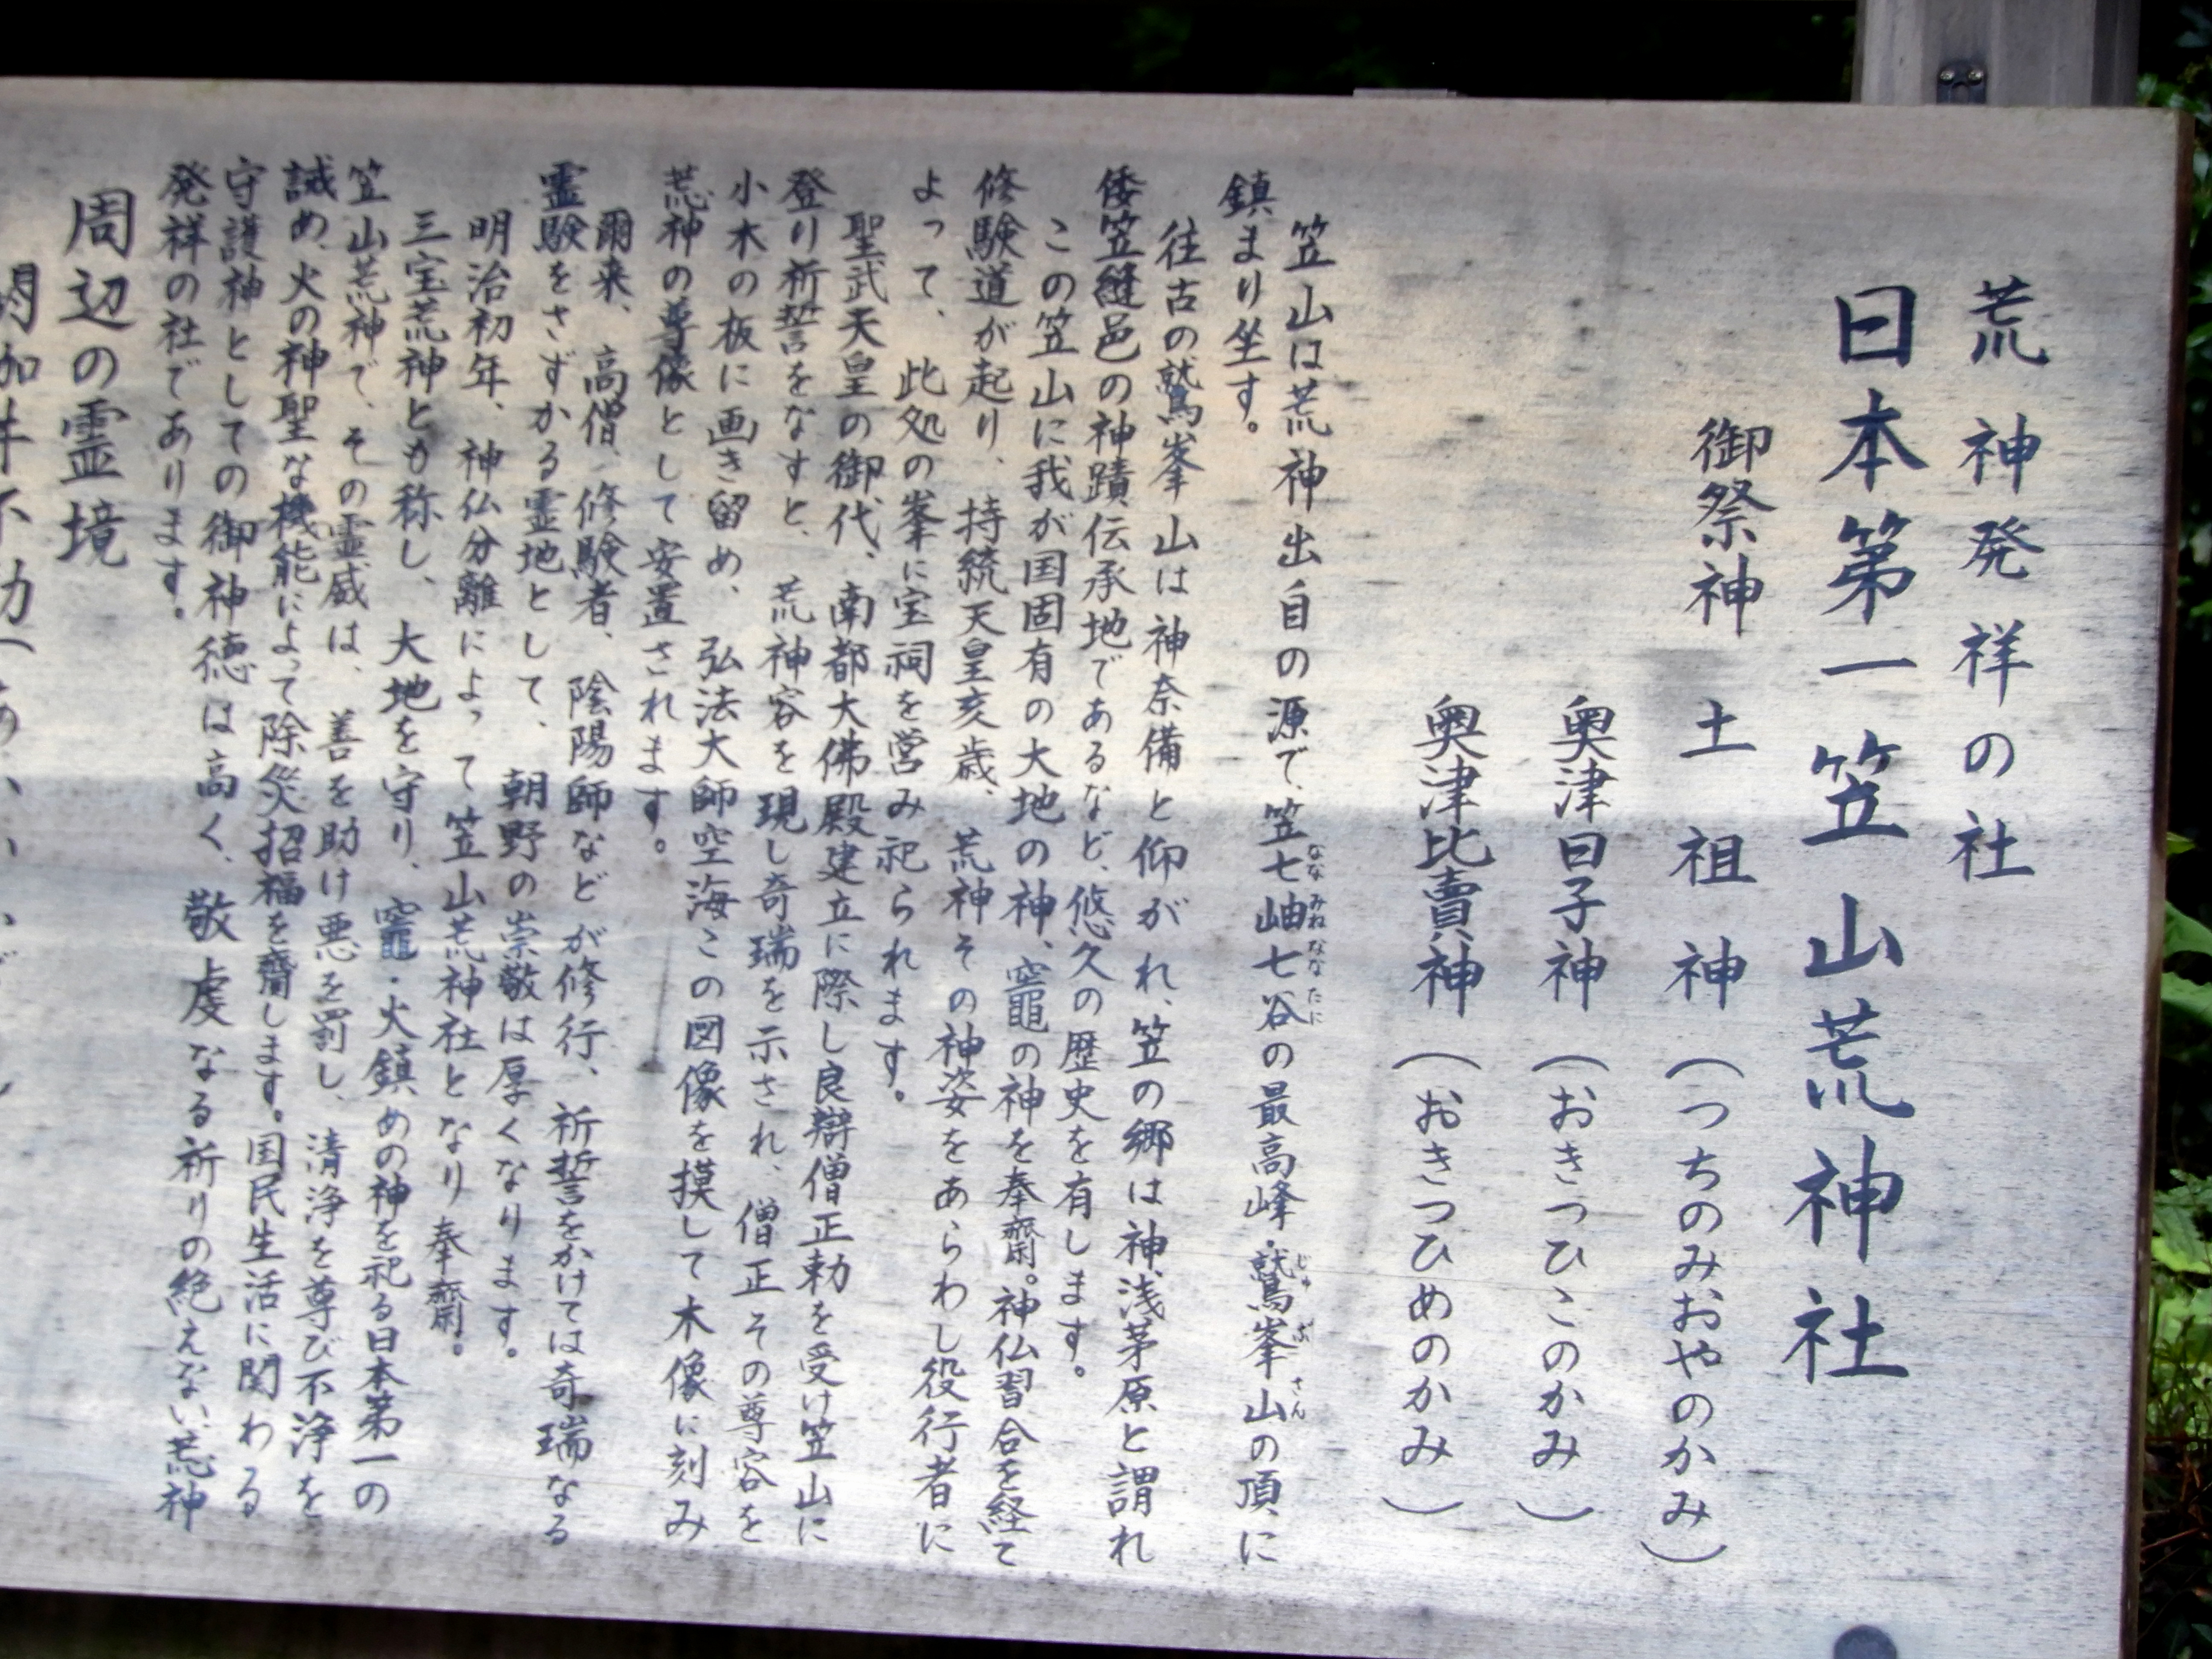 荒神発祥の社
日本第一 笠山荒神社
御祭神 土祖神（つちのみおやのかみ）
奥津日子神（おきつひこのかみ）
奥津比賣神（おきつひめのかみ）
笠山は荒神出自の源で、笠七岫七谷の最高峰・鷲峯山の頂に
ななみねななたに
じゅぶさん
鎮まり坐す。
往古の鷲峯山は神奈備と仰がれ、笠の郷は神浅茅原と謂れ
倭笠縫邑の神蹟伝承地であるなど、悠久の歴史を有します。
この笠山に我が国固有の大地の神、竈の神を奉齋。神仏習合を経て
修験道が起り、持統天皇亥歳、荒神その神姿をあらわし役行者に
よって、此処の峯に宝祠を営み祀られます。
聖武天皇の御代、南都大佛殿建立に際し良辯僧正勅を受け笠山に
登り祈誓をなすと、荒神容を現し奇瑞を示され、僧正その尊容を
小木の板に画き留め、弘法大師空海この図像を摸して木像に刻み
荒神の尊像として安置されます。
爾来、高僧、修験者、陰陽師などが修行、祈誓をかけては奇瑞なる
霊験をさずかる霊地として、朝野の崇敬は厚くなります。
明治初年、神仏分離によって笠山荒神社となり奉齋。
三宝荒神とも称し、大地を守り、竈・火鎮めの神を祀る日本第一の
笠山荒神で、その霊威は、善を助け悪を罰し、清浄を尊び不浄を
誡め、火の神聖な機能によって除災招福を齎します。国民生活に関わる
守護神としての御神徳は高く、敬虔なる祈りの絶えない荒神
発祥の社であります。
周辺の霊境